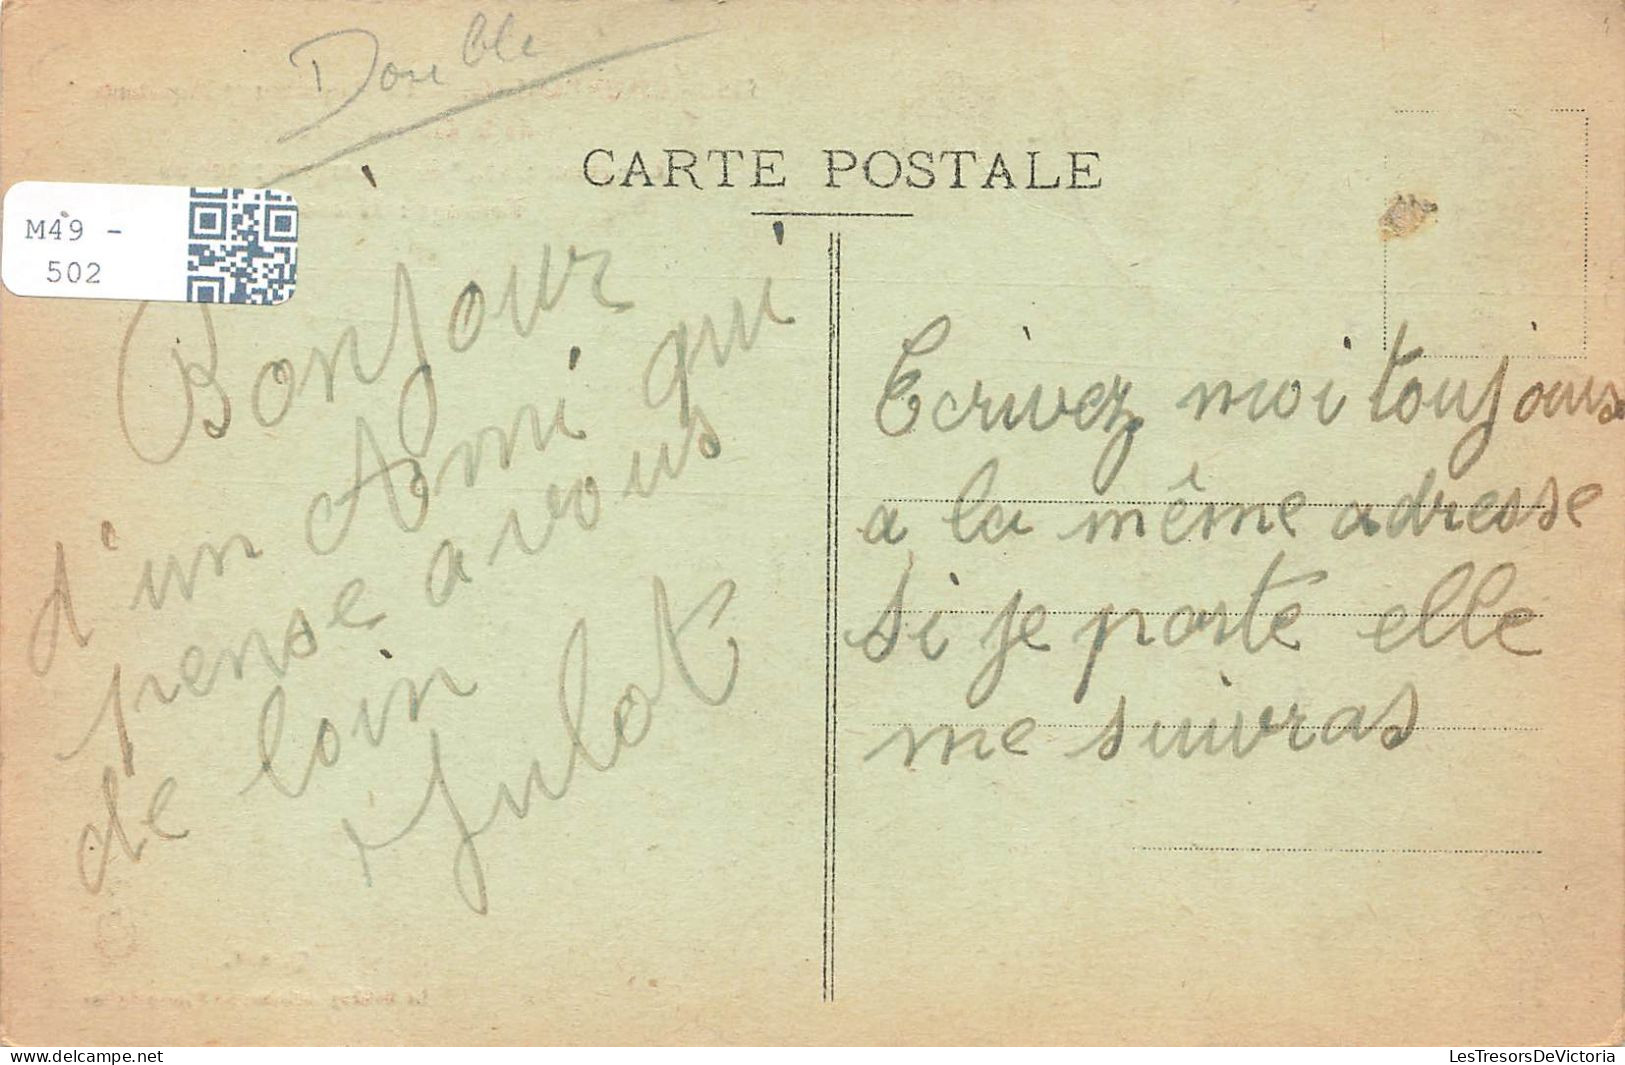 Double
CARTE POSTALE
M49 -
502
Bonjour
d'un Ami qui
pense a vous
de loin
Julot
Ecrivez moi toujours
a la même adresse
si je parte elle
me suivras
LesTresorsDeVictoria
delcampe.net